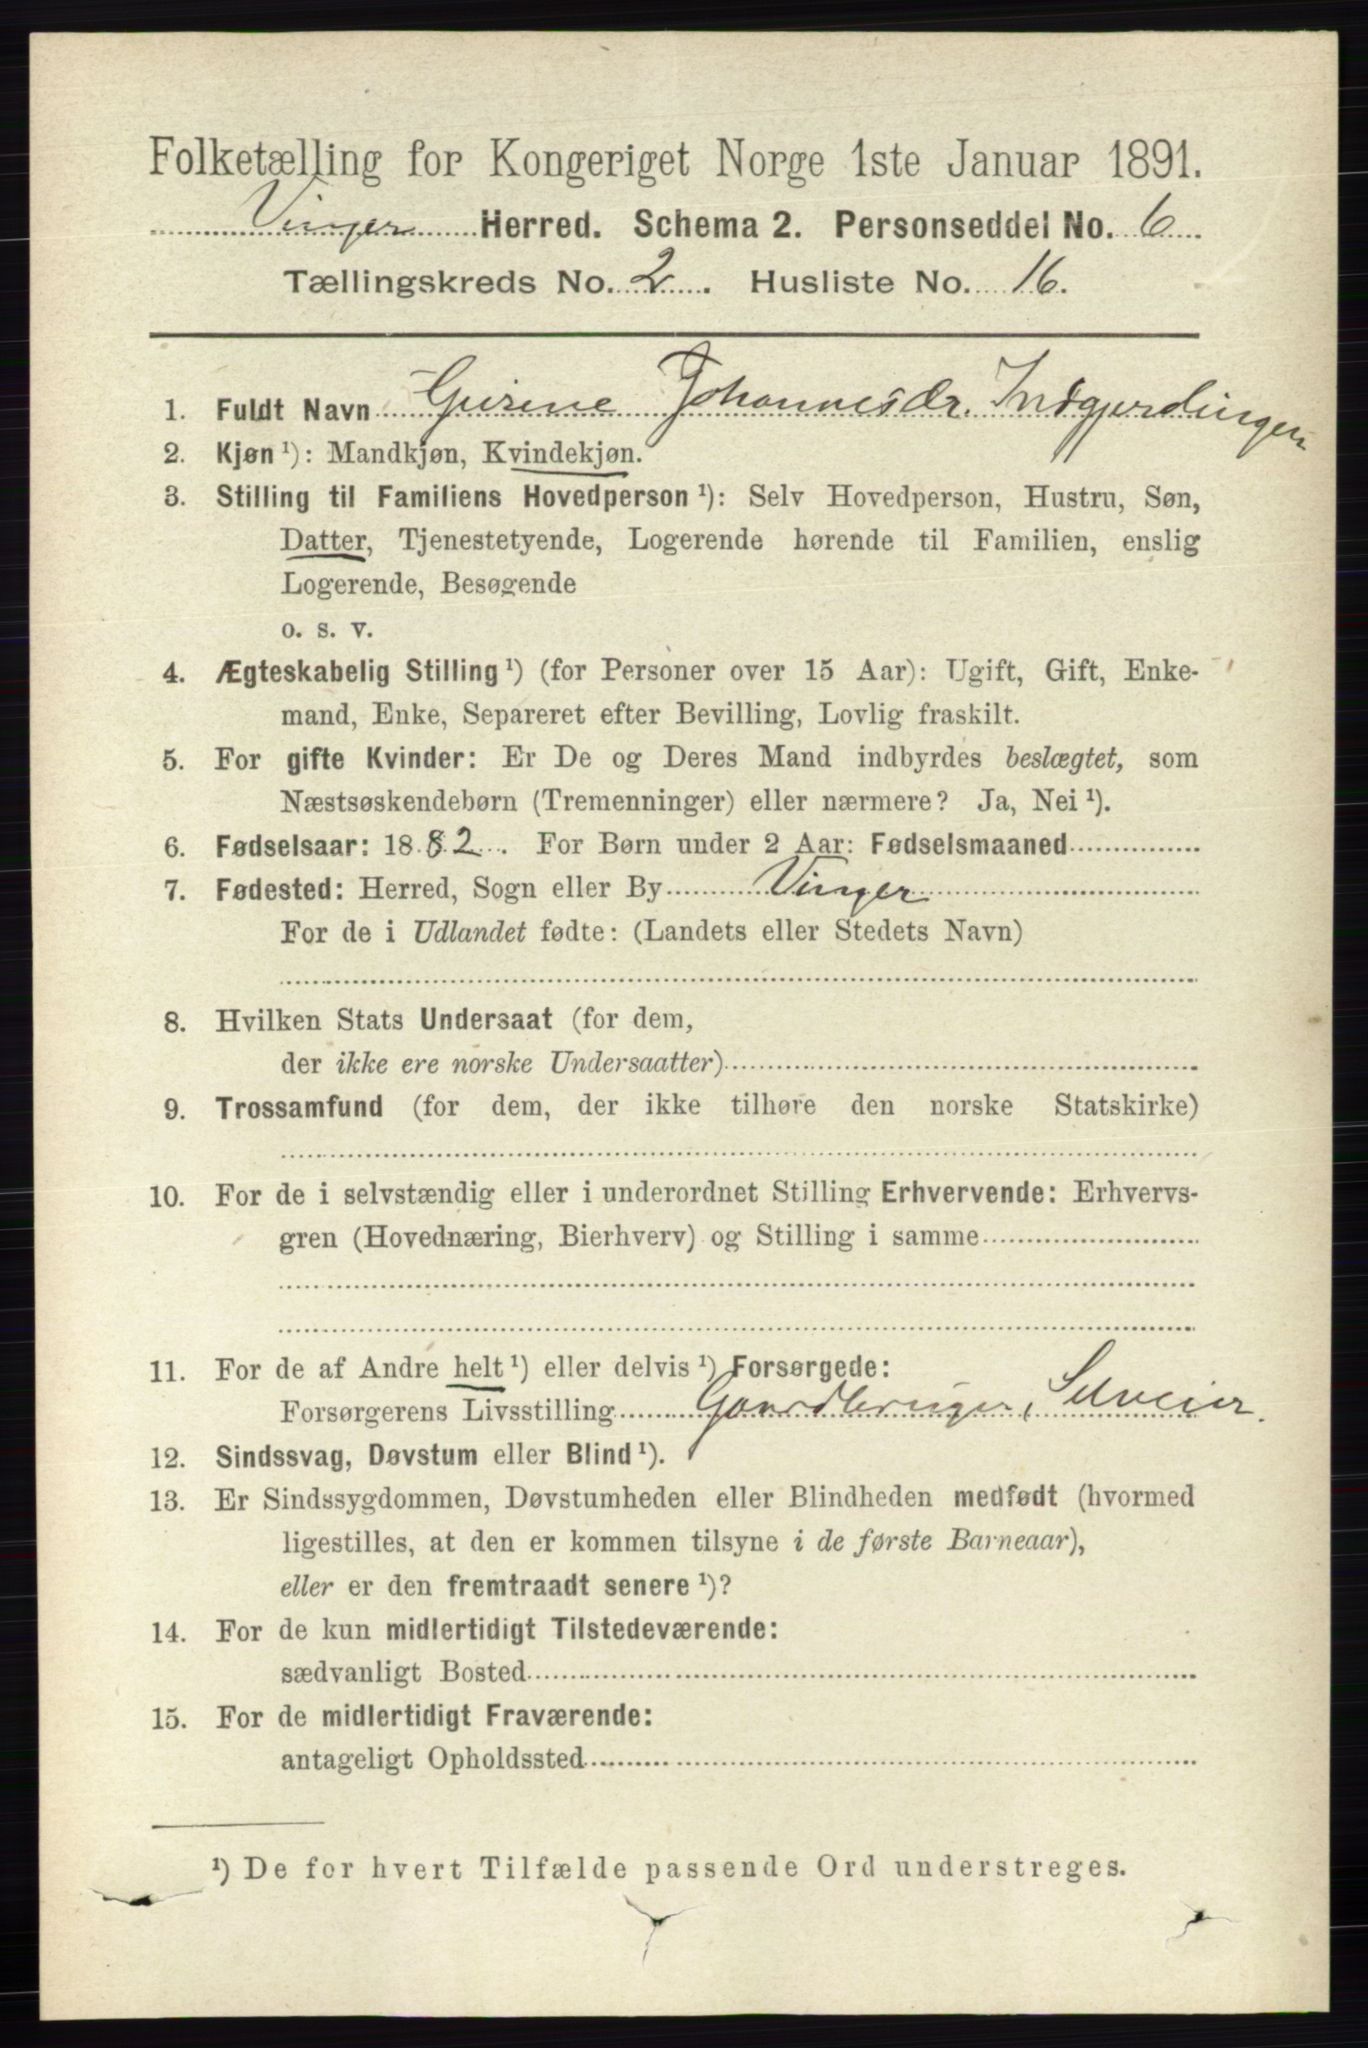 Folketælling for Kongeriget Norge 1ste Januar 1891.
Vinger Herred. Schema 2. Personseddel No. 6
Tællingskreds No. 2. Husliste No. 16.
1. Fuldt Navn Gurine Johannesdr. Indgjerdingen
2. Kjøn ¹): Mandkjøn, Kvindekjøn.
3. Stilling til Familiens Hovedperson ¹): Selv Hovedperson, Hustru, Søn,
Datter, Tjenestetyende, Logerende hørende til Familien, enslig
Logerende, Besøgende
o. s. v.
4. Ægteskabelig Stilling ¹) (for Personer over 15 Aar): Ugift, Gift, Enke-
mand, Enke, Separeret efter Bevilling, Lovlig fraskilt.
5. For gifte Kvinder: Er De og Deres Mand indbyrdes beslægtet, som
Næstsøskendebørn (Tremenninger) eller nærmere? Ja, Nei ¹).
6. Fødselsaar: 1882. For Børn under 2 Aar: Fødselsmaaned
7. Fødested: Herred, Sogn eller By Vinger
For de i Udlandet fødte: (Landets eller Stedets Navn)
8. Hvilken Stats Undersaat (for dem,
der ikke ere norske Undersaatter)
9. Trossamfund (for dem, der ikke tilhøre den norske Statskirke)
10. For de i selvstændig eller i underordnet Stilling Erhvervende: Erhvervs-
gren (Hovednæring, Bierhverv) og Stilling i samme
11. For de af Andre helt ¹) eller delvis ¹) Forsørgede:
Forsørgerens Livsstilling Gaardbruger, Selveier.
12. Sindssvag, Døvstum eller Blind ¹).
13. Er Sindssygdommen, Døvstumheden eller Blindheden medfødt (hvormed
ligestilles, at den er kommen tilsyne i de første Barneaar),
eller er den fremtraadt senere ¹)?
14. For de kun midlertidigt Tilstedeværende:
sædvanligt Bosted
15. For de midlertidigt Fraværende:
antageligt Opholdssted
¹) De for hvert Tilfælde passende Ord understreges.